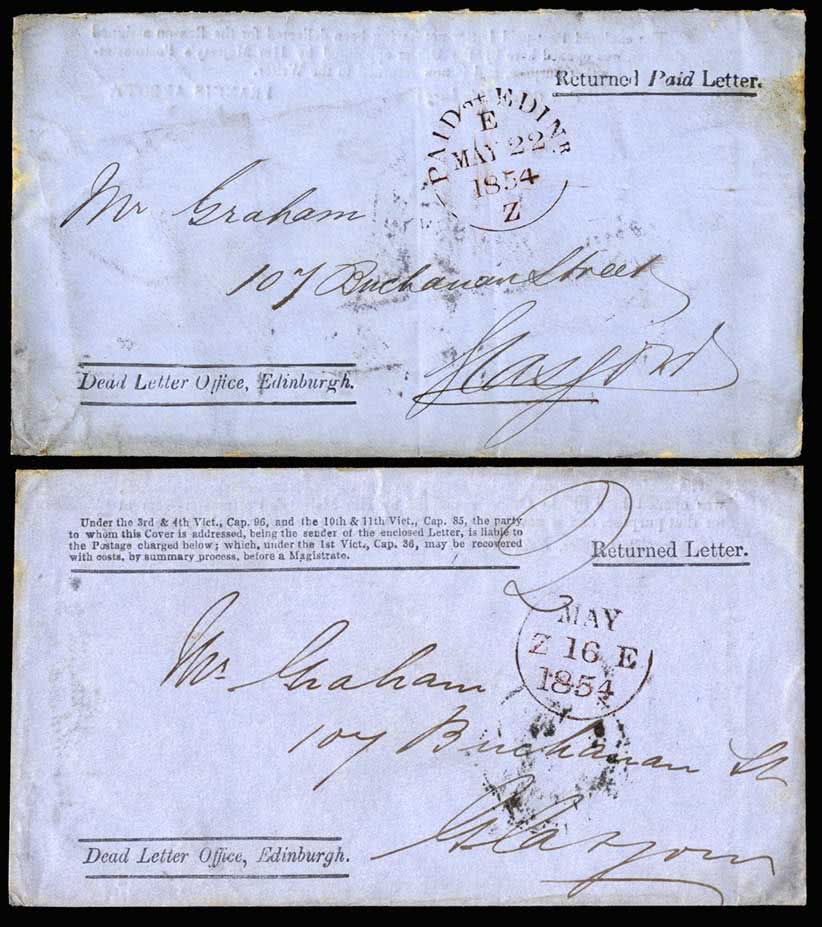 Returned Paid Letter.
PAID EDINR
E
MAY 22
1854
Z
Mr Graham
107 Buchanan Street
Glasgow
Dead Letter Office, Edinburgh.
Under the 3rd & 4th Vict., Cap. 96, and the 10th & 11th Vict., Cap. 85, the party
to whom this Cover is addressed, being the sender of the enclosed Letter, is liable to
the Postage charged below; which, under the 1st Vict., Cap. 36, may be recovered
with costs, by summary process, before a Magistrate.
2
Returned Letter.
MAY
Z 16 E
1854
Mr Graham
107 Buchanan St
Glasgow
Dead Letter Office, Edinburgh.